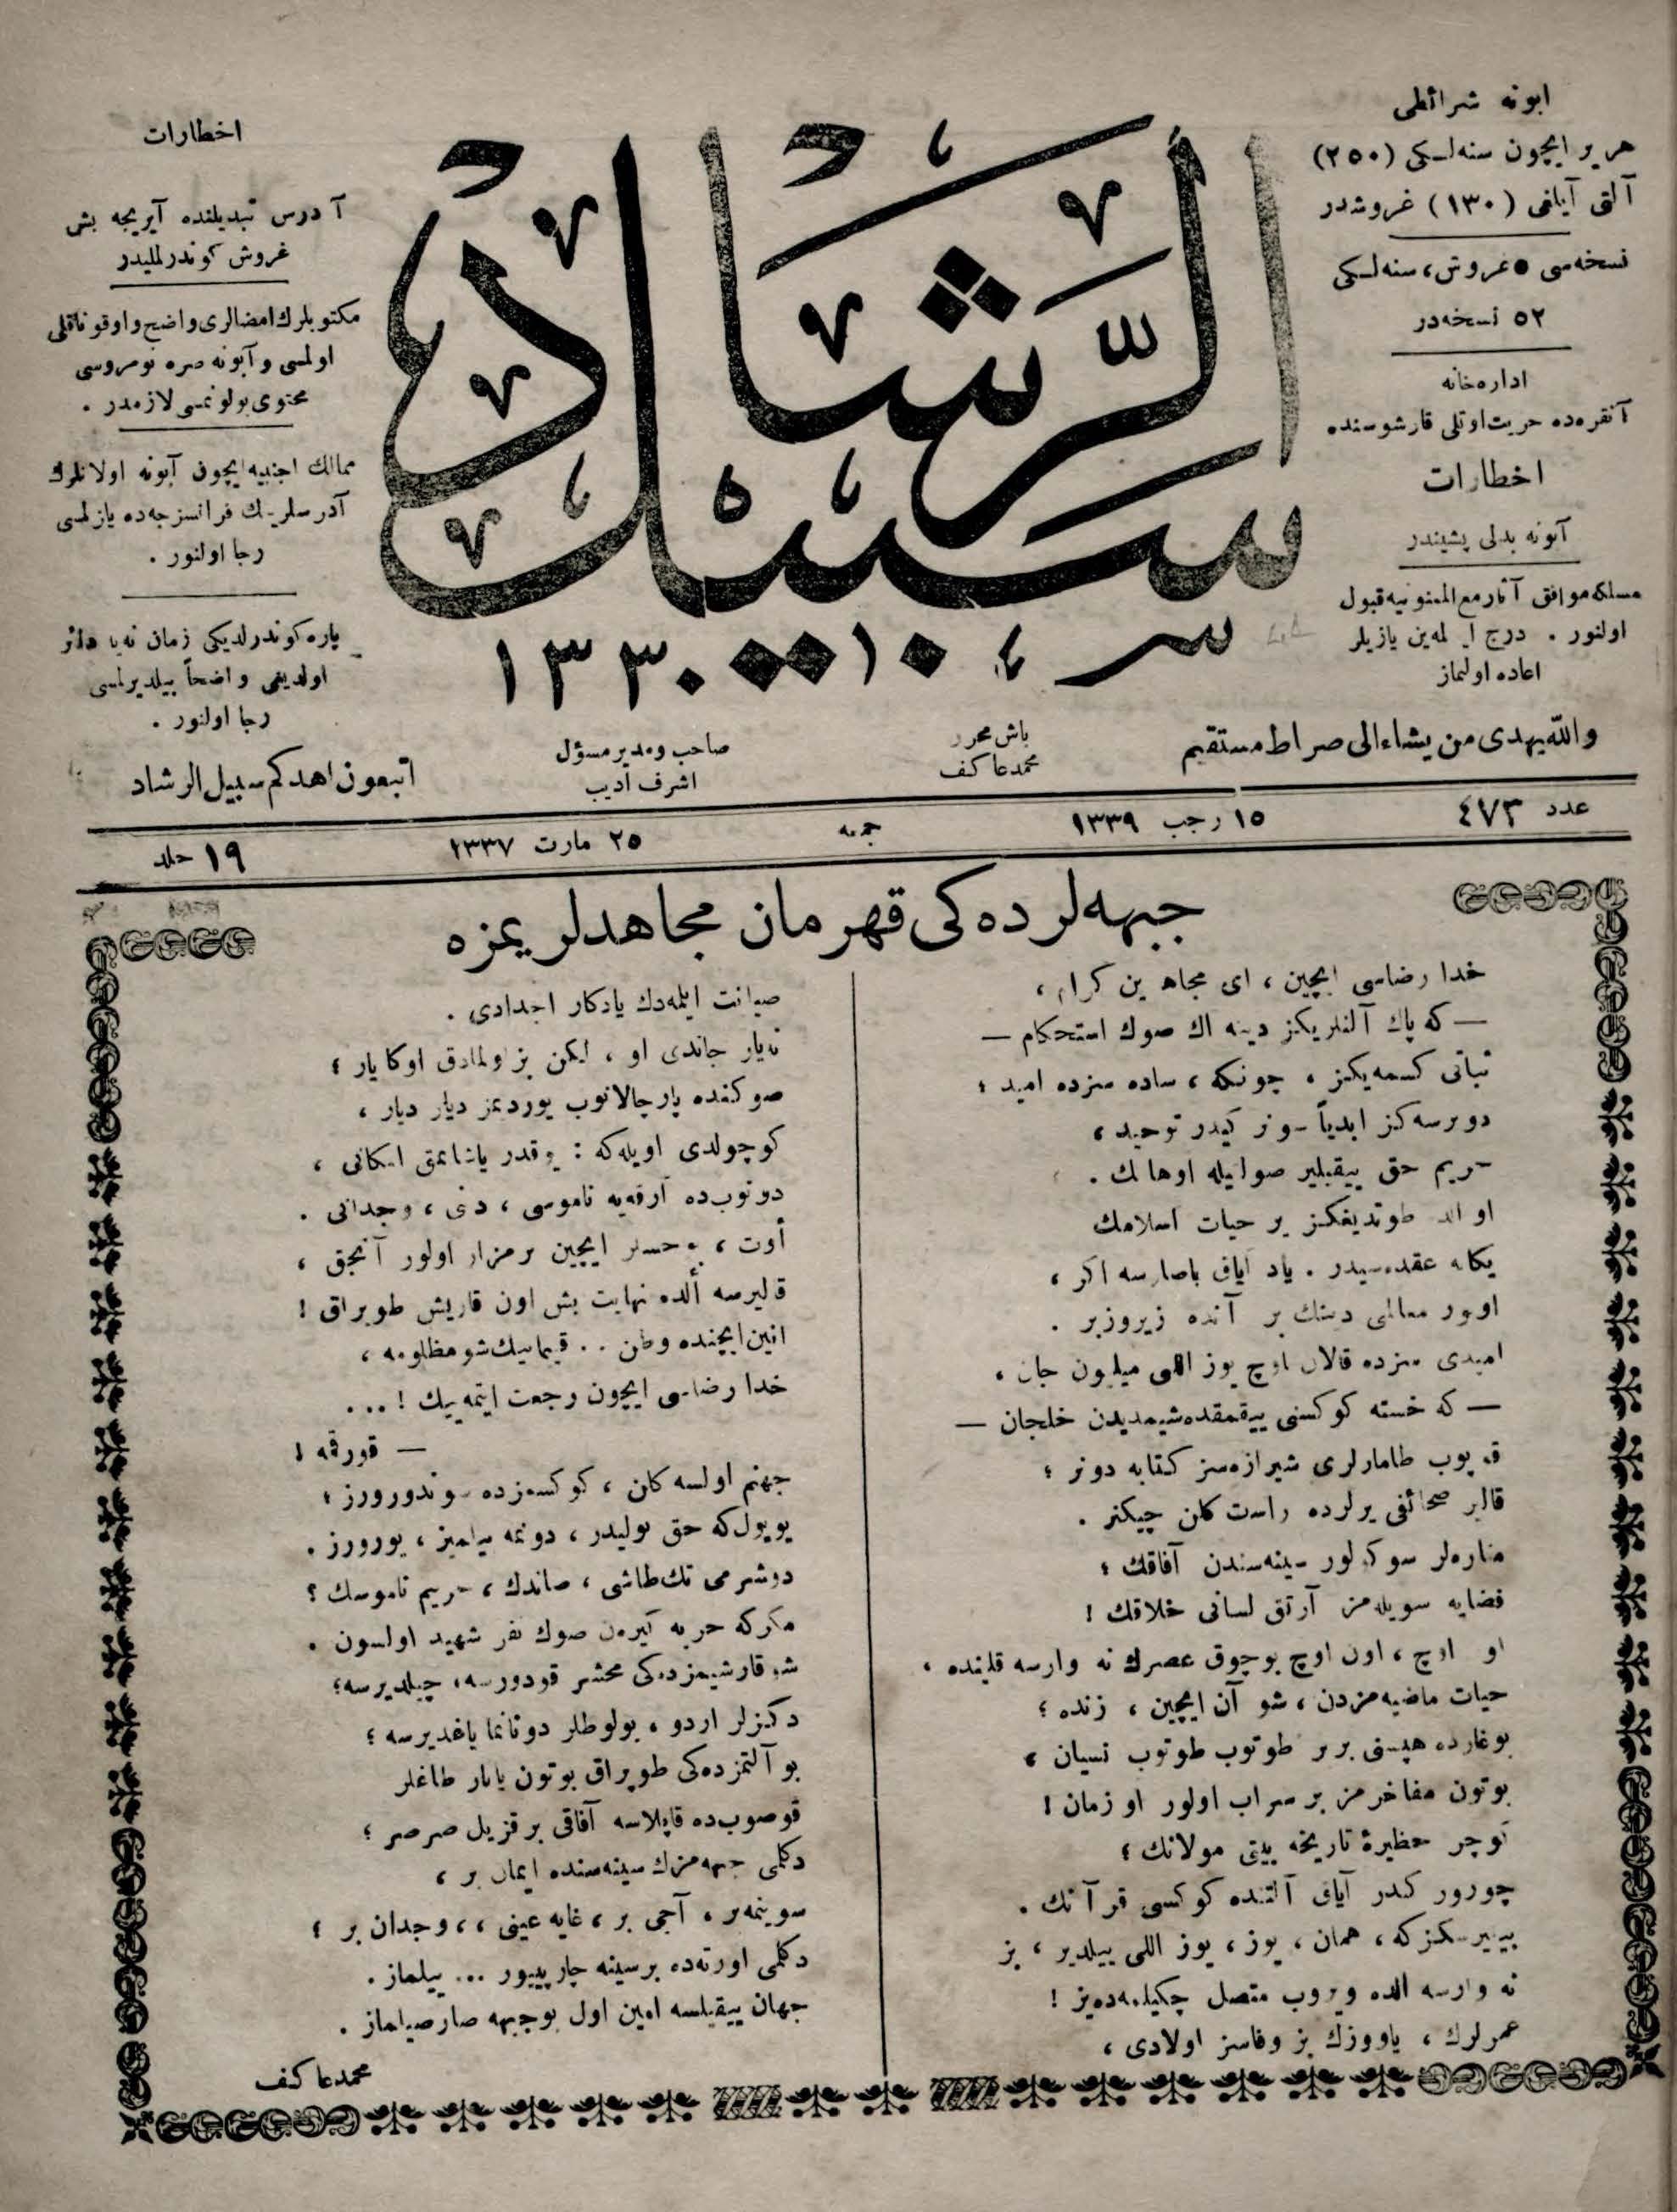 ابونه شرائطی
هر یر ایچون سنه‌لكی (۲۵۰)
آلتی آیلغی (۱۳۰) غروشدر
نسخه‌سی ۵ غروش، سنه‌لكی
۵۲ نسخه‌در
اداره‌خانه
آنقره‌ده حریت اوتلی قارشوسنده
اخطارات
آبونه بدلی پشیندر
مسلكه موافق آثار مع الممنونیه قبول
اولنور . درج ایدلمه‌ین یازیلر
اعاده اولنماز
سبیل الرشاد
سر ۱۰ ۱۳۳۰
اخطارات
آدرس تبدیلنده آیریجه بش
غروش كوندرلملیدر
مكتوبلرك امضالری واضح و اوقوناقلی
اولمسی و آبونه صره نومروسی
محتوی بولونمسی لازمدر .
ممالك اجنبیه ایچون آبونه اولانلرك
آدرسلرینك فرانسزجه‌ده یازلمسی
رجا اولنور .
پاره كوندرلدیكی زمان نه‌یه دائر
اولدیغی واضحاً بیلدیرلمسی
رجا اولنور .
والله یهدی من یشاء الی صراط مستقیم
باش محرر
محمد عاكف
صاحب و مدیر مسؤل
اشرف ادیب
اتبعون اهدكم سبیل الرشاد
عدد ۴۷۳
۱۵ رجب ۱۳۳۹
جمعه
۲۵ مارت ۱۳۳۷
۱۹ جلد
جبهه‌لرده‌كی قهرمان مجاهدلریمزه
خدا رضاسی ایچین ، ای مجاهدین كرام ،
— كه پاك آلنلریكز دینه اك صوك استحكام —
ثباتی كسمه‌یكز ، چونكه ، ساده سزده امید ؛
دوررسه‌كز ابدیاً سونر كیدر توحید ،
حریم حق ییقیلیر صولیله اوهامك .
او الده طوتدیغكز یر حیات اسلامك
یكانه عقده‌سیدر . یاد ایاق باصارسه اكر ،
اولور معالی دینك بر آنده زیروزبر .
امیدی سزده قالان اوچ یوز اللی میلیون جان ،
— كه خسته كوكسنی ییقمقده شیمدیدن خلجان —
قوپوب طامارلری شیرازه‌سز كتابه دونر ؛
قالیر صحائفی یرلرده راست كلن چیكنر .
مناره‌لر سوكولور سینه‌سندن آفاقك ؛
فضایه سویله‌مز آرتق لسانی خلاقك !
او اوچ ، اون اوچ بوچوق عصرك نه وارسه قلبنده ،
حیات ماضیه‌مزدن ، شو آن ایچین ، زنده ؛
بوغارده هپسنی بربر طوتوب طوتوب نسیان ،
بوتون مفاخرمز بر سراب اولور او زمان !
كوچر حظیرهٔ تاریخه بیتی مولانك ؛
چورور كیدر آیاق آلتنده كوكسی قرآنك .
بیلیرسكز كه ، همان ، یوز ، یوز اللی ییلدیر ، بز
نه وارسه الده ویروب متصل چكیلمه‌ده‌یز !
عمرلرك ، یاووزك بز وفاسز اولادی ،
صیانت ایلمه‌دك یادكار اجدادی .
نه‌یار جاندی او ، لیكن بز اولمادق اوكا یار ؛
صوكنده پارچالانوب یوردیمز دیار دیار ،
كوچولدی اویله كه : یوقدر یاشاتمق امكانی ،
دونوب‌ده آرقه‌یه ناموسی ، دنی ، وجدانی .
أوت ، بو حسلر ایچین بر مزار اولور آنجق ،
قالیرسه ألده نهایت بش اون قاریش طوپراق !
انین ایچنده وطن . . قیمایك شو مظلومه ،
خدا رضاسی ایچون رجعت ایتمه‌ییك ! ...
— قورقمه !
جهنم اولسه كلن ، كوكسمزده سوندورورز ؛
بو یول كه حق یولیدر ، دونمه بیلمیز ، یورورز .
دوشرمی تك طاشی ، صاندك ، حریم ناموسك ؟
مكر كه حربه كیرن صوك نفر شهید اولسون .
شو قارشیمزده‌كی محشر قودورسه ، چیلدیرسه ؛
دكزلر اردو ، بولوطلر دونانما یاغدیرسه ؛
بو آلتمزده‌كی طوپراق بوتون یانار طاغلر
قوصوب‌ده قاپلاسه آفاقی بر قزیل صرصر ؛
دكلمی جبهه‌مزك سینه‌سنده ایمان بر ،
سوینمه بر ، آجی بر ، غایه عینی ،، وجدان بر ؛
دكلمی اورته‌ده بر سینه چارپییور ... ییلماز .
جهان ییقیلسه امین اول بو جبهه صارصیلماز .
محمد عاكف